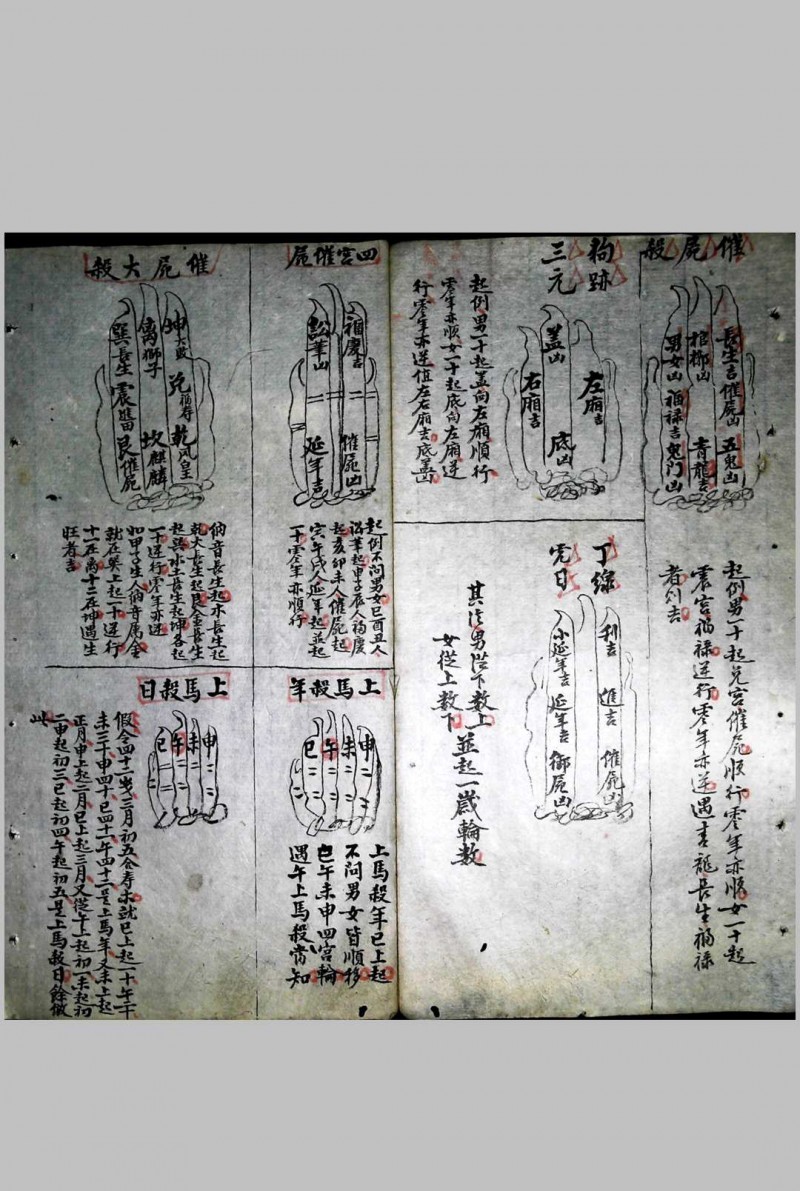 催屍殺
長生吉催屍凶五鬼凶
棺槨凶 青龍吉
男女凶福祿吉鬼門凶
起例男一十起兌宮催屍順行零年亦順女一十起
震宮福祿逆行零年亦逆遇青龍長生福祿
者則吉
狗跡
三元
左廂吉
蓋凶 底凶
右廂吉
起例男一十起蓋向左廂順行
零年亦順女一十起底向左廂逆
行零年亦逆值左右廂吉底蓋凶
丁線
利吉 進吉 催屍凶
小延年吉 延年吉 御屍凶
其法男從下数上
女從上数下並起一歲輪数
四宮催屍
福慶吉 催屍凶
延年吉
起例不問男女巳酉丑人
起申子辰人福慶
起亥卯未人催屍起
寅午戌人延年起並起
一十零年亦順行
催屍大殺
坤大敗 兌福寿 乾凤皇
离獅子 坎麒麟
巽長生 震進田 艮催屍
納音長生起水長生起
乾火長生起艮金長生
起巽水土長生起坤各起
一十逆行零年亦逆
如甲子生人納音属金
就在巽上起一十逆行
十一在离十二在坤遇生
旺者吉
上馬殺年
申
未
午
巳
上馬殺年巳上起
不問男女皆順移
巳午未申四宮輪
遇午上馬殺當知
上馬殺日
申
未
午
巳
假令四十二歲三月初五合寿未就巳上起一十午二十
未三十申四十巳四十一午四十二是上馬年又未上起
正月申上起二月巳上起三月又從午上起初一未起初
二申起初三巳起初四午起初五是上馬殺日餘倣
此